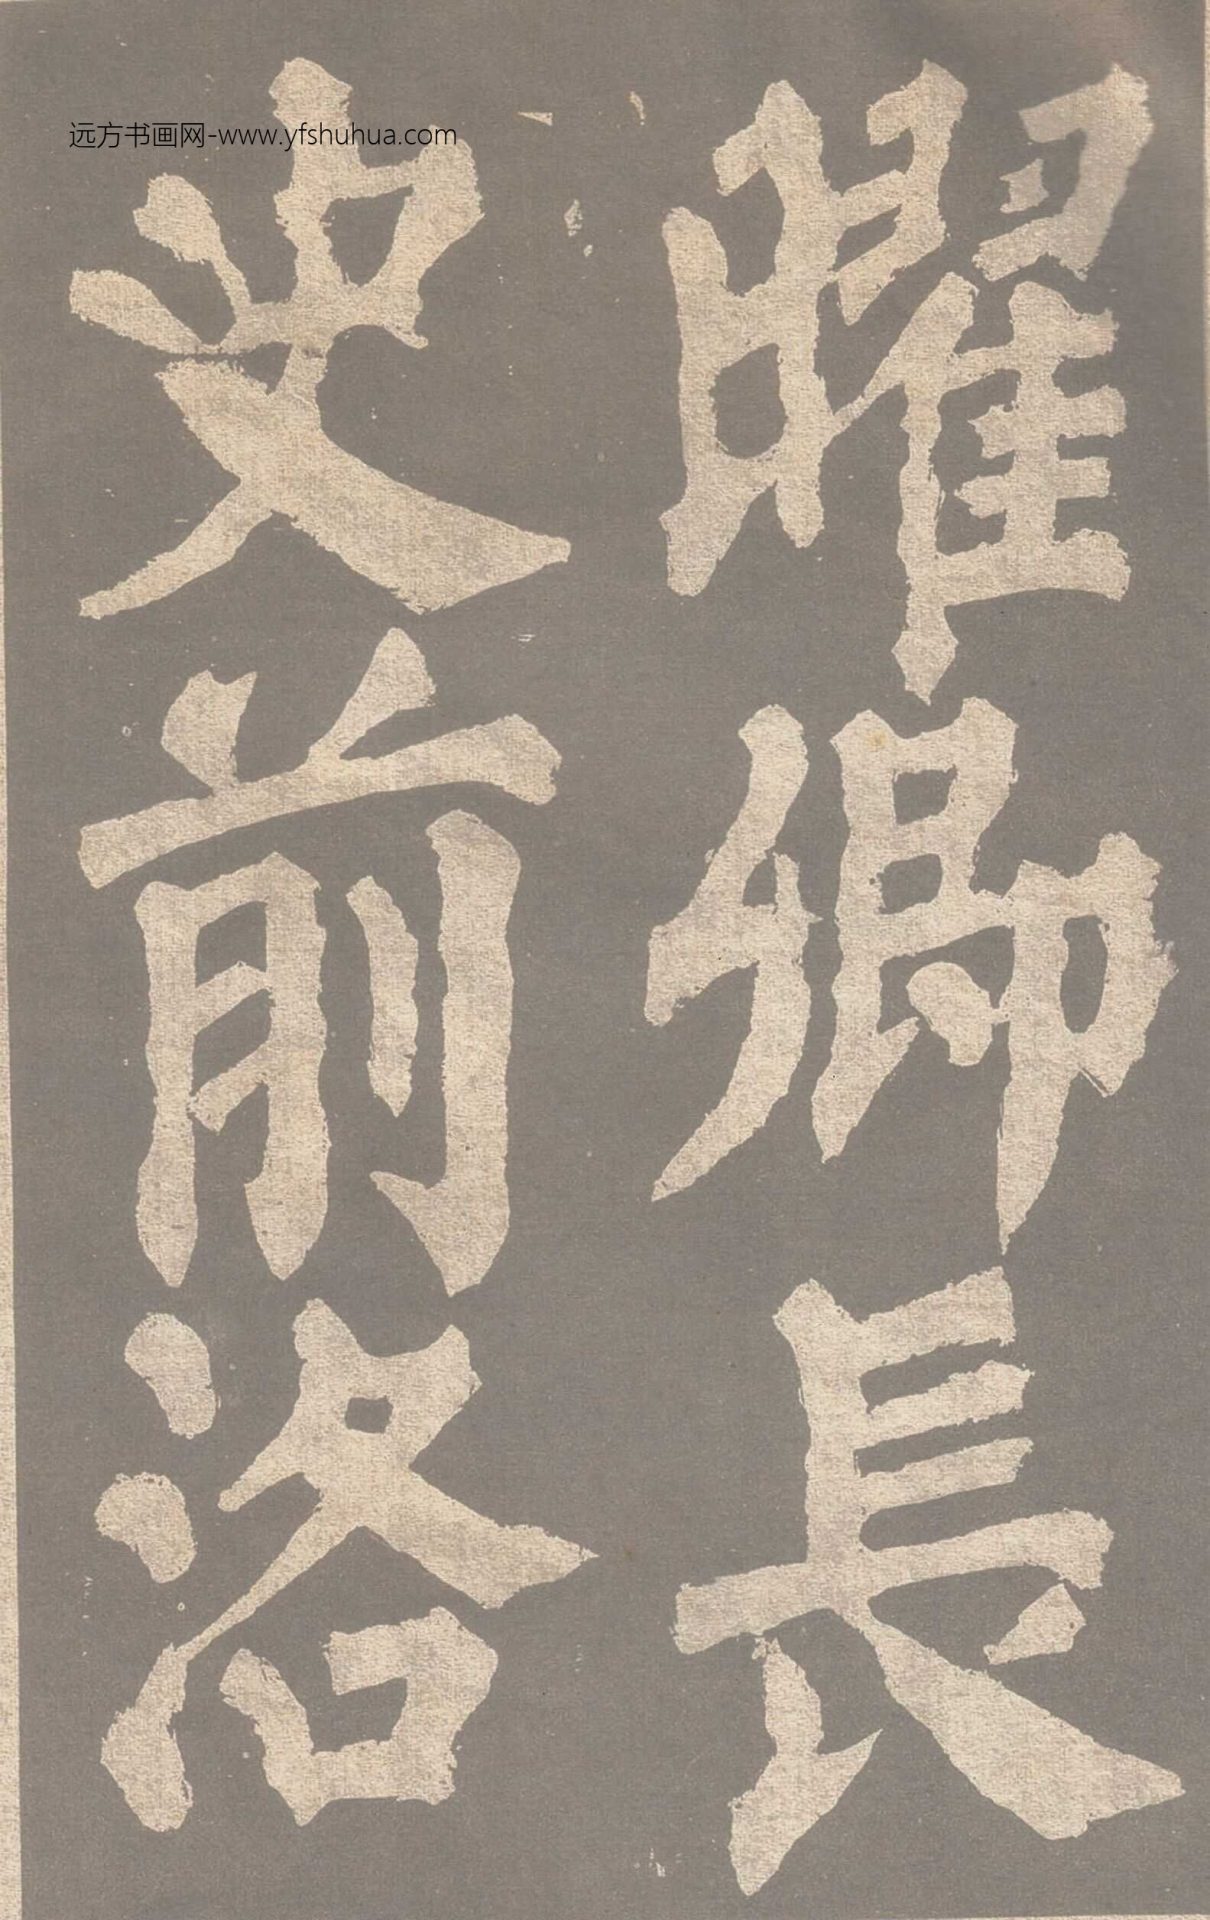 曜卿長
史前洛
远方书画网-www.yfshuhua.com